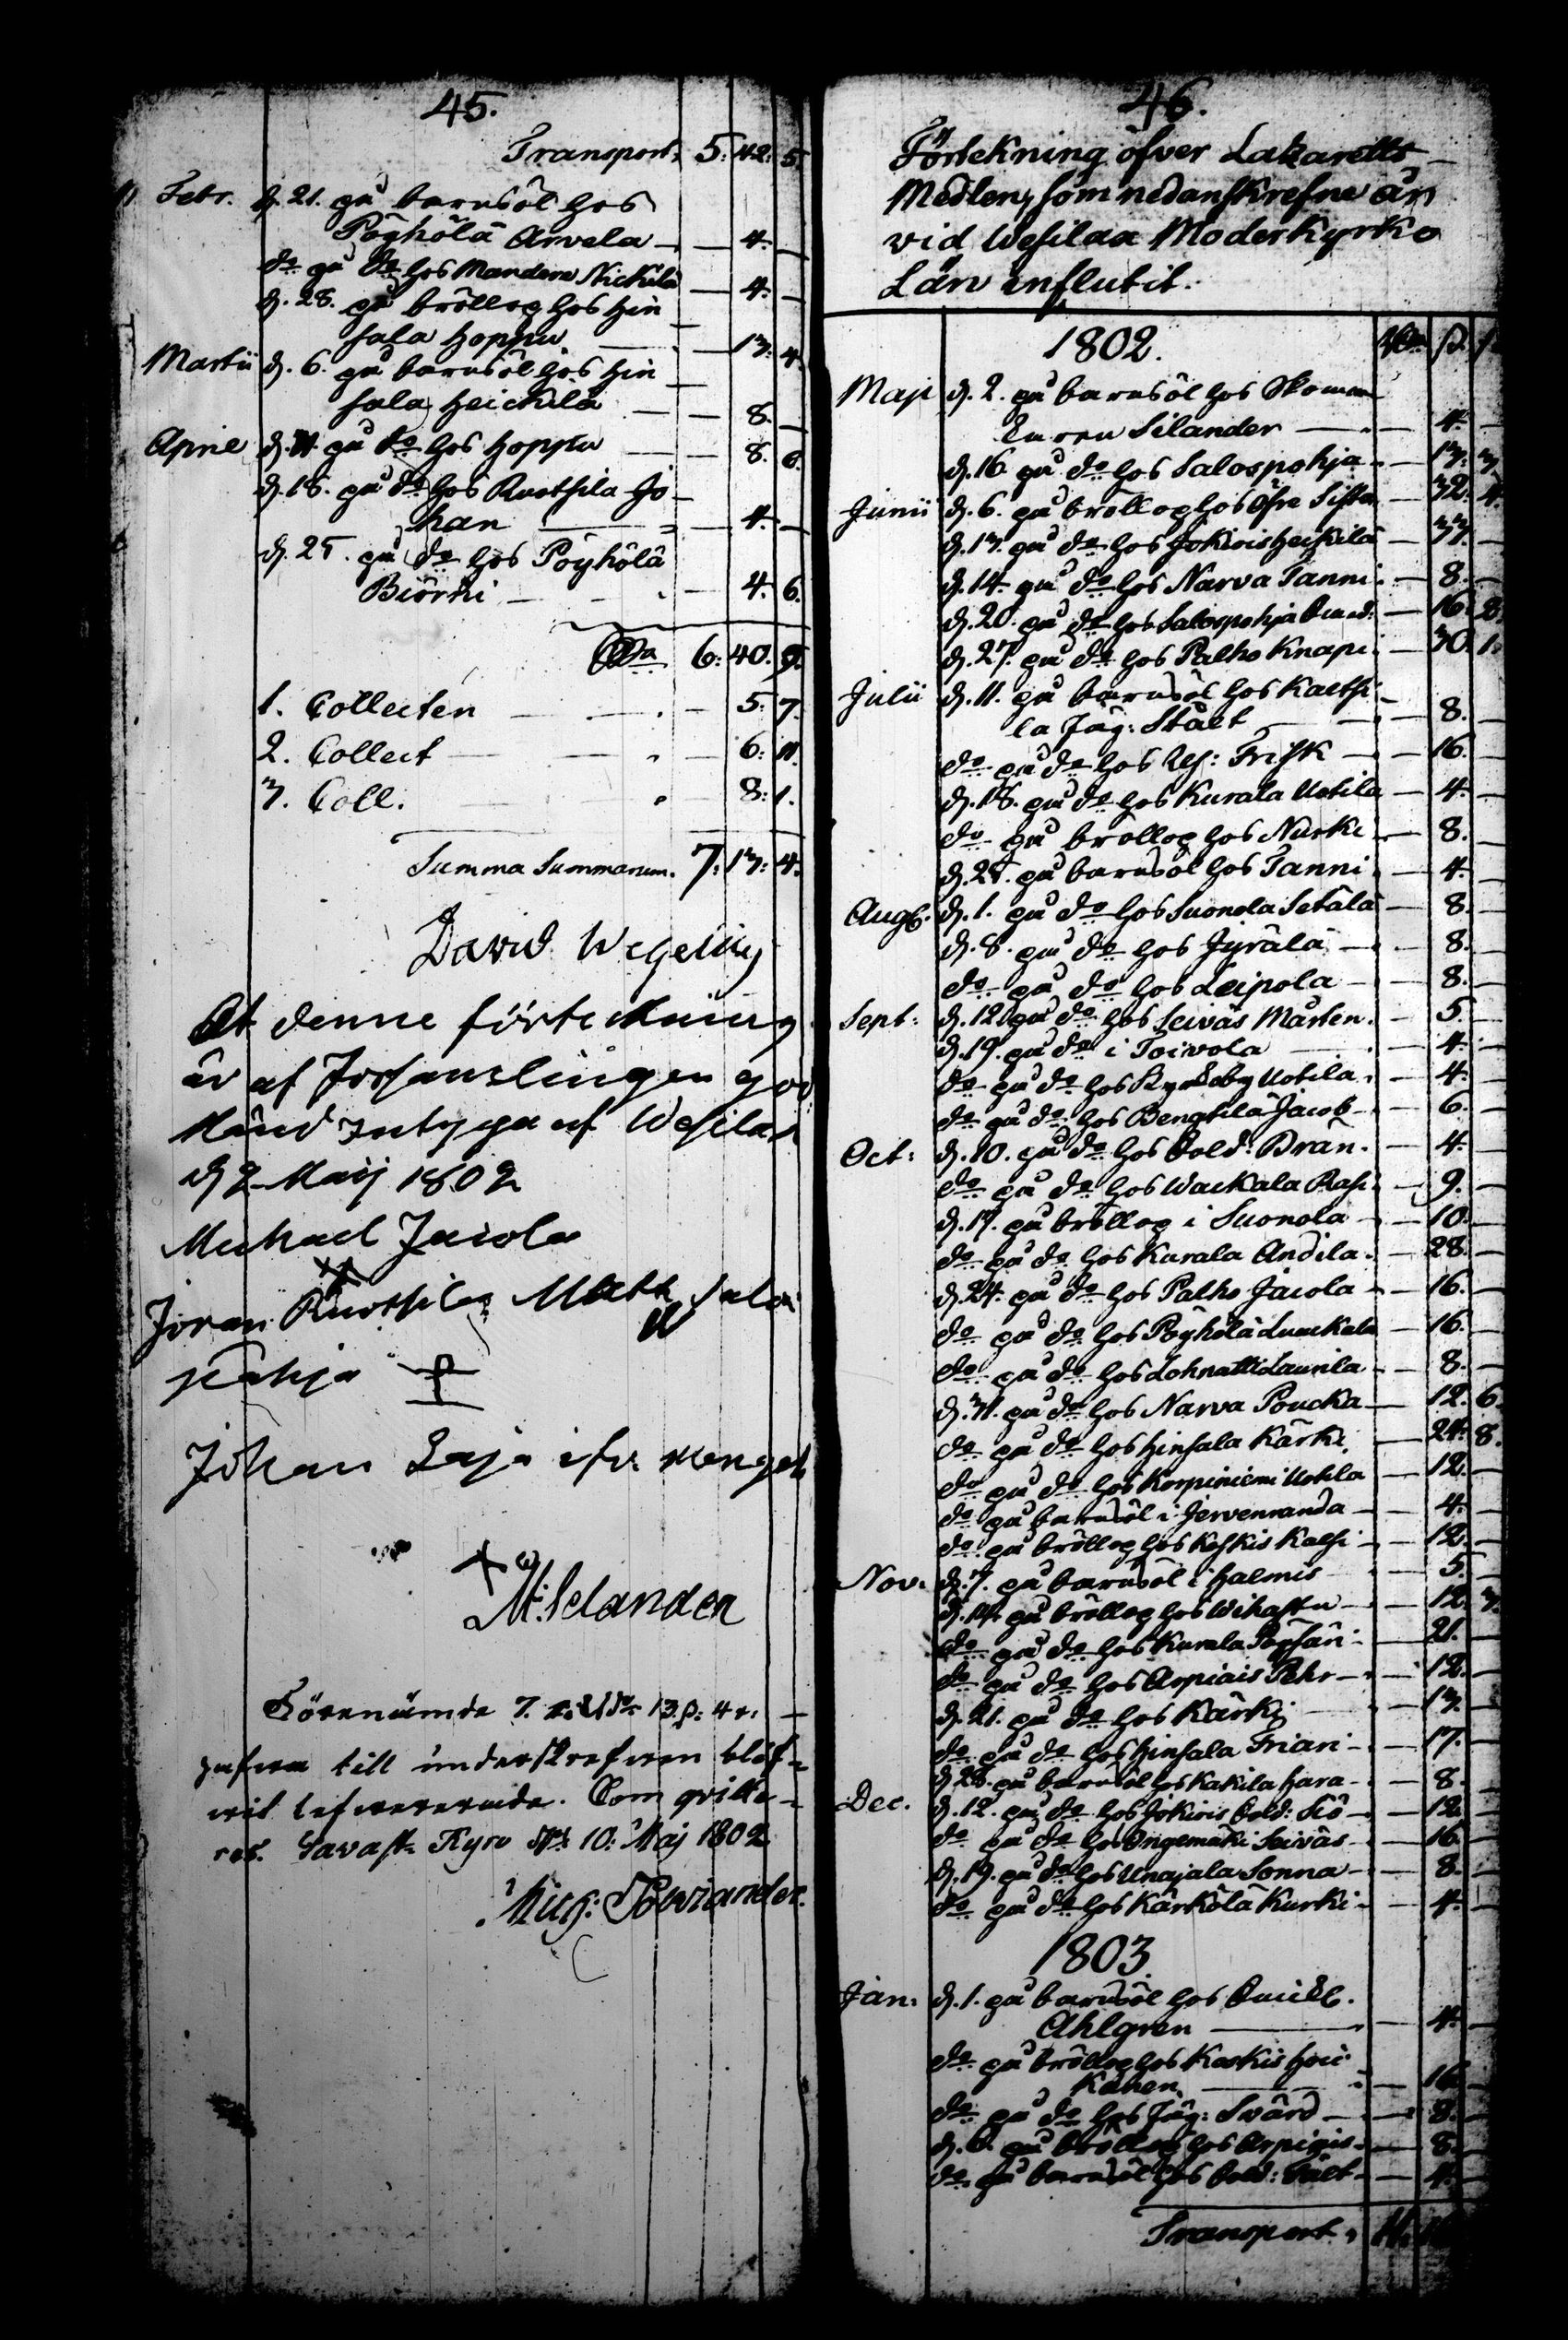 45.
Transport. 5: 42: 5.
Febr. d. 21. på barnsöl hos
Pöyhölä Arvela — — 4. —
do på do hos Mandern Nickilä — 4. —
d. 28. på bröllop hos Hin
sala Hoppu — — 13. 4.
Martii d. 6. på barnsöl hos Hin
sala Heickilä — — 8. —
Aprill d. 11. på do hos Hoppu — — 8. 6.
d. 18. på do hos Ruothila Jo-
han — — 4. —
d. 25. på do hos Pöyhölä
Biörni — — 4. 6.
6: 40. 9.
1. Collecten — — 5: 7.
2. Collect — — 6: 11.
3. Coll. — — 8: 1.
Summa Summarum. 7: 13: 4.
David Wegelius
At denne förteckning
är af Församlingen god
känd intygas af Wesilax
d 2 Maij 1802
Michael Jacola
Johan Ruothila Matt Salos
pohja
Johan Laja
M: Selander
Förenämde 7. Rdr 13 s: 4 r. —
till underskrefwen blif-
wit lefwererade. Som qvitte-
ras. Tavast Kyro d. 10: Maj 1802
46.
Förtekning öfver Lazaretts
Medlen, som nedanskrefne år
vid Wesilax Moderkyrko
Län influtit.
1802. Rdr ß. r.
Maji d. 2. på barnsöl hos Skomm
Silander — — 4. —
d. 16. på do hos Salospohja — 13. 3.
Junii d. 6. på bröllop hos Öfre Sipla — 32. 4.
d. 13. på do hos Jokiois Heikilä — 33. —
d. 14. på do hos Narva Tanni — 8. —
d. 20. på do hos Salospohja — 16. 8.
d. 27. på do hos Palho Knapi — 30. 1.
Julii d. 11. på barnsöl hos Kaethi
la Jäg: Stält — — 8. —
do på do hos Res: Frisk — — 16. —
d. 18. på do hos Kurala Uotila — 4. —
do på bröllop hos Nurki — 8. —
d. 25. på barnsöl hos Tanni — 4. —
Aug. d. 1. på do hos Suonola Setälä — 8. —
d. 8. på do hos Jyrälä — 8. —
do på do hos Leipola — 8. —
Sept: d. 12. på do hos Seiväs Mårten. — 5. —
d. 19. på do i Toivola — 4. —
do på do hos Kyrckoby Uotila. — 4. —
do på do hos Bengtilä Jacob — 6. —
Oct: d. 10. på do hos Sold: Brän. — 4. —
do på do hos Wackala Rasi — 9. —
d. 17. på bröllop i Suonola — 10. —
do på do hos Kurala Andila. — 28. —
d. 24. på do hos Palho Jacola — 16. —
do på do hos Pöyhölä Luuckala — 16. —
do på do hos Lohnatti Laurila — 8. —
d. 31. på do hos Narva Poucka — 12. 6.
do på do hos Hinsala Kärki — 24. 8.
do på do hos Korpiniemi Uotila — 12. —
do på barnsöl i Jervenranda — 4. —
do på bröllop hos Keskis Kalsi — 12. —
Nov. d. 7. på barnsöl i Halmis — 5. —
d. 14. på bröllop hos Wihastu — 12. 3.
do på do hos Kurala Poysäri — 21. —
do på do hos Arpiais Pehr — 12. —
d. 21. på do hos Kärki — 13. —
do på do hos Hinsala Friari — 17. —
d. 28. på barnsöl hos Kakila Hara — 8. —
Dec. d. 12. på do hos Jokiois Sold: Siö — 12. —
do på do hos Ongemäki Seiväs — 16. —
d. 19. på do hos Unajala Sonna — 8. —
do på do hos Kärkölä Kurki — 4. —
1803
Jan: d. 1. på barnsöl hos
Ahlgren — — 4. —
do på bröllop hos Koskis Hoii
kanen — — 16 —
do på do hos Jäg: Svärd — — 8. —
d. 6. på bröllop hos Arpiais — 8. —
do på barnsöl hos Sold: Fält — 4. —
Transport.